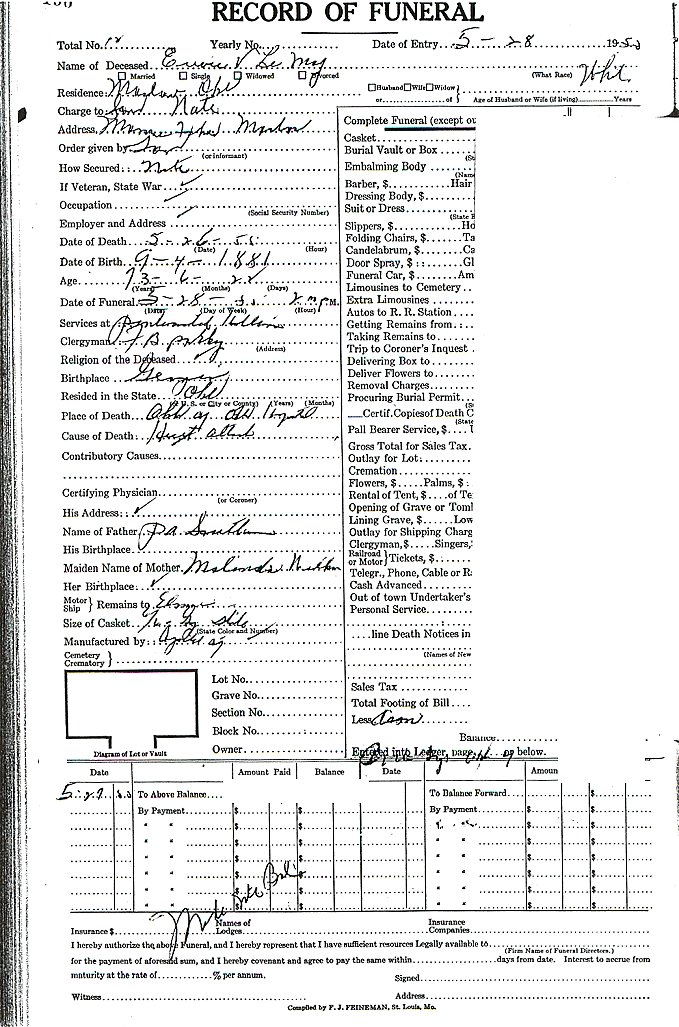 RECORD OF FUNERAL
Total No. Yearly No. Date of Entry 5-28 195
Name of Deceased V. Le May
Married Single Widowed Divorced (What Race) Whit
Residence: Marlow Okl Husband Wife Widow
or of Age of Husband or Wife (if living) Years
Charge to Nate
Address, Marlow
Order given by
(or informant)
How Secured: Note
If Veteran, State War
Occupation
(Social Security Number)
Employer and Address
Date of Death 5-26-55
(Date) (Hour)
Date of Birth 9-4-1881
Age 73-6-22
(Years) (Months) (Days)
Date of Funeral 5-28- 2 P.M.
(Date) (Day of Week) (Hour)
Services at
Clergyman
(Address)
Religion of the Deceased
Birthplace
Resided in the State Okl
(U. S. or City or County) (Years) (Months)
Place of Death
Cause of Death: Heart attack
Contributory Causes
Certifying Physician
(or Coroner)
His Address:
Name of Father,
His Birthplace
Maiden Name of Mother. Malinda
Her Birthplace:
Motor Ship } Remains to
Size of Casket
(State Color and Number)
Manufactured by:
Cemetery Crematory }
Diagram of Lot or Vault
Lot No.
Grave No.
Section No.
Block No.
Owner
Complete Funeral (except ou
Casket
Burial Vault or Box
(St
Embalming Body
(Nam
Barber, $ Hair
Dressing Body, $
Suit or Dress
(State B
Slippers, $ Ho
Folding Chairs, $ Ta
Candelabrum, $ Ca
Door Spray, $ : Gl
Funeral Car, $ Am
Limousines to Cemetery
Extra Limousines
Autos to R. R. Station
Getting Remains from
Taking Remains to
Trip to Coroner's Inquest
Delivering Box to
Deliver Flowers to
Removal Charges
Procuring Burial Permit
(St
Certif. Copies of Death C
(State
Pall Bearer Service, $
Gross Total for Sales Tax
Outlay for Lot:
Cremation
Flowers, $ Palms, $ :
Rental of Tent, $ of Te
Opening of Grave or Toml
Lining Grave, $ Low
Outlay for Shipping Charg
Clergyman, $ Singers,
Railroad or Motor } Tickets, $
Telegr., Phone, Cable or R
Cash Advanced
Out of town Undertaker's
Personal Service
line Death Notices in
(Names of New
Sales Tax
Total Footing of Bill
Less
Balance
Entered into Ledger, page or below.
Date Amount Paid Balance Date Amoun
5-27 To Above Balance $ To Balance Forward $
By Payment $ $ By Payment $ $
" " $ $ " " $ $
" " $ $ " " $ $
" " $ $ " " $ $
" " $ $ " " $ $
" " $ $ " " $ $
" " $ $ " " $ $
Note
Insurance $ Names of Lodges Insurance Companies
I hereby authorize the above Funeral, and I hereby represent that I have sufficient resources Legally available to
(Firm Name of Funeral Directors.)
for the payment of aforesaid sum, and I hereby covenant and agree to pay the same within days from date. Interest to accrue from
maturity at the rate of % per annum. Signed
Witness Address
Compiled by F. J. FEINEMAN, St. Louis, Mo.